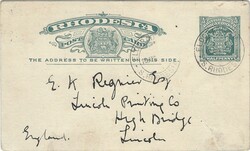 RHODESIA
POST CARD
THE ADDRESS TO BE WRITTEN ON THIS SIDE.
E. K. Regnier Esq
Lincoln Printing Co
High Bridge
Lincoln
England.